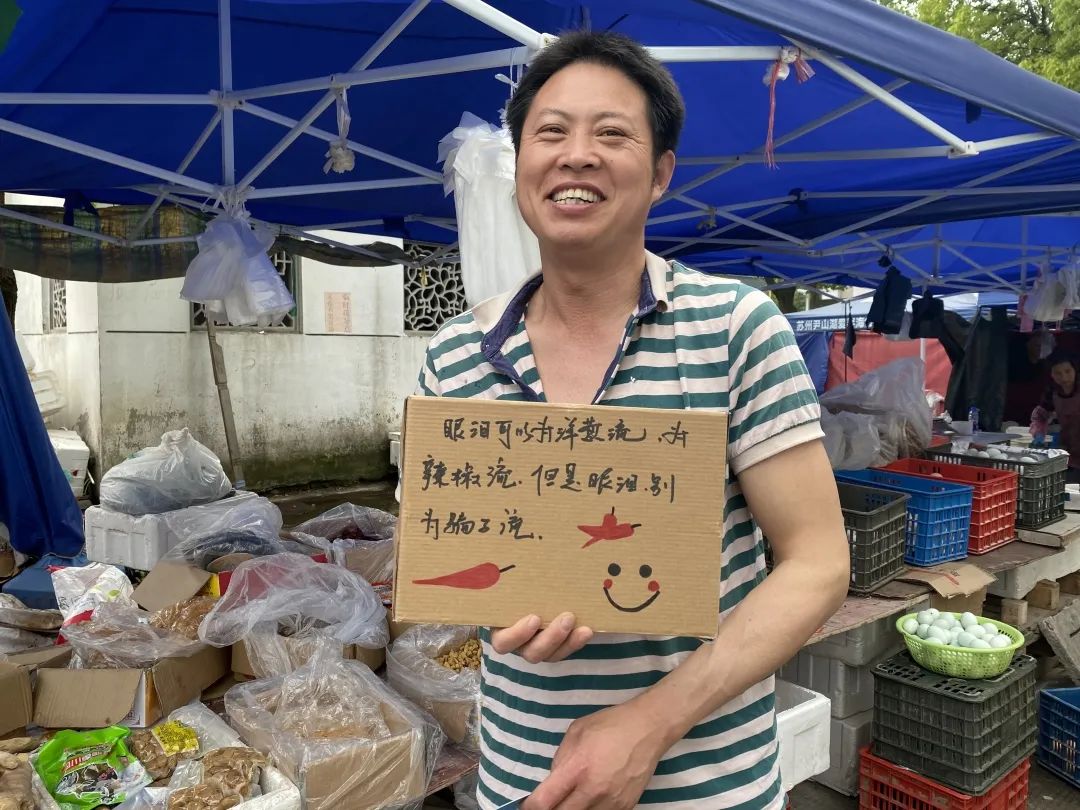 苏州尹山湖
眼泪可以为洋葱流.为
辣椒流.但是眼泪别
为骗子流.